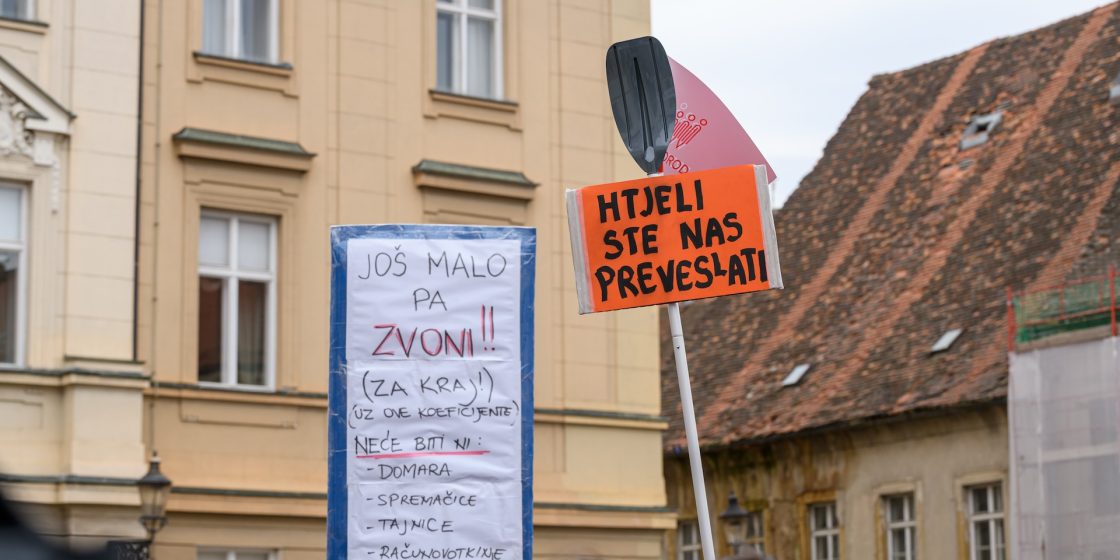 JOŠ MALO
PA
ZVONI!!
(ZA KRAJ!)
(UZ OVE KOEFICIJENTE)
NEĆE BITI NI:
- DOMARA
- SPREMAČICE
- TAJNICE
- RAČUNOVOTKINJE
HTJELI
STE NAS
PREVESLATI